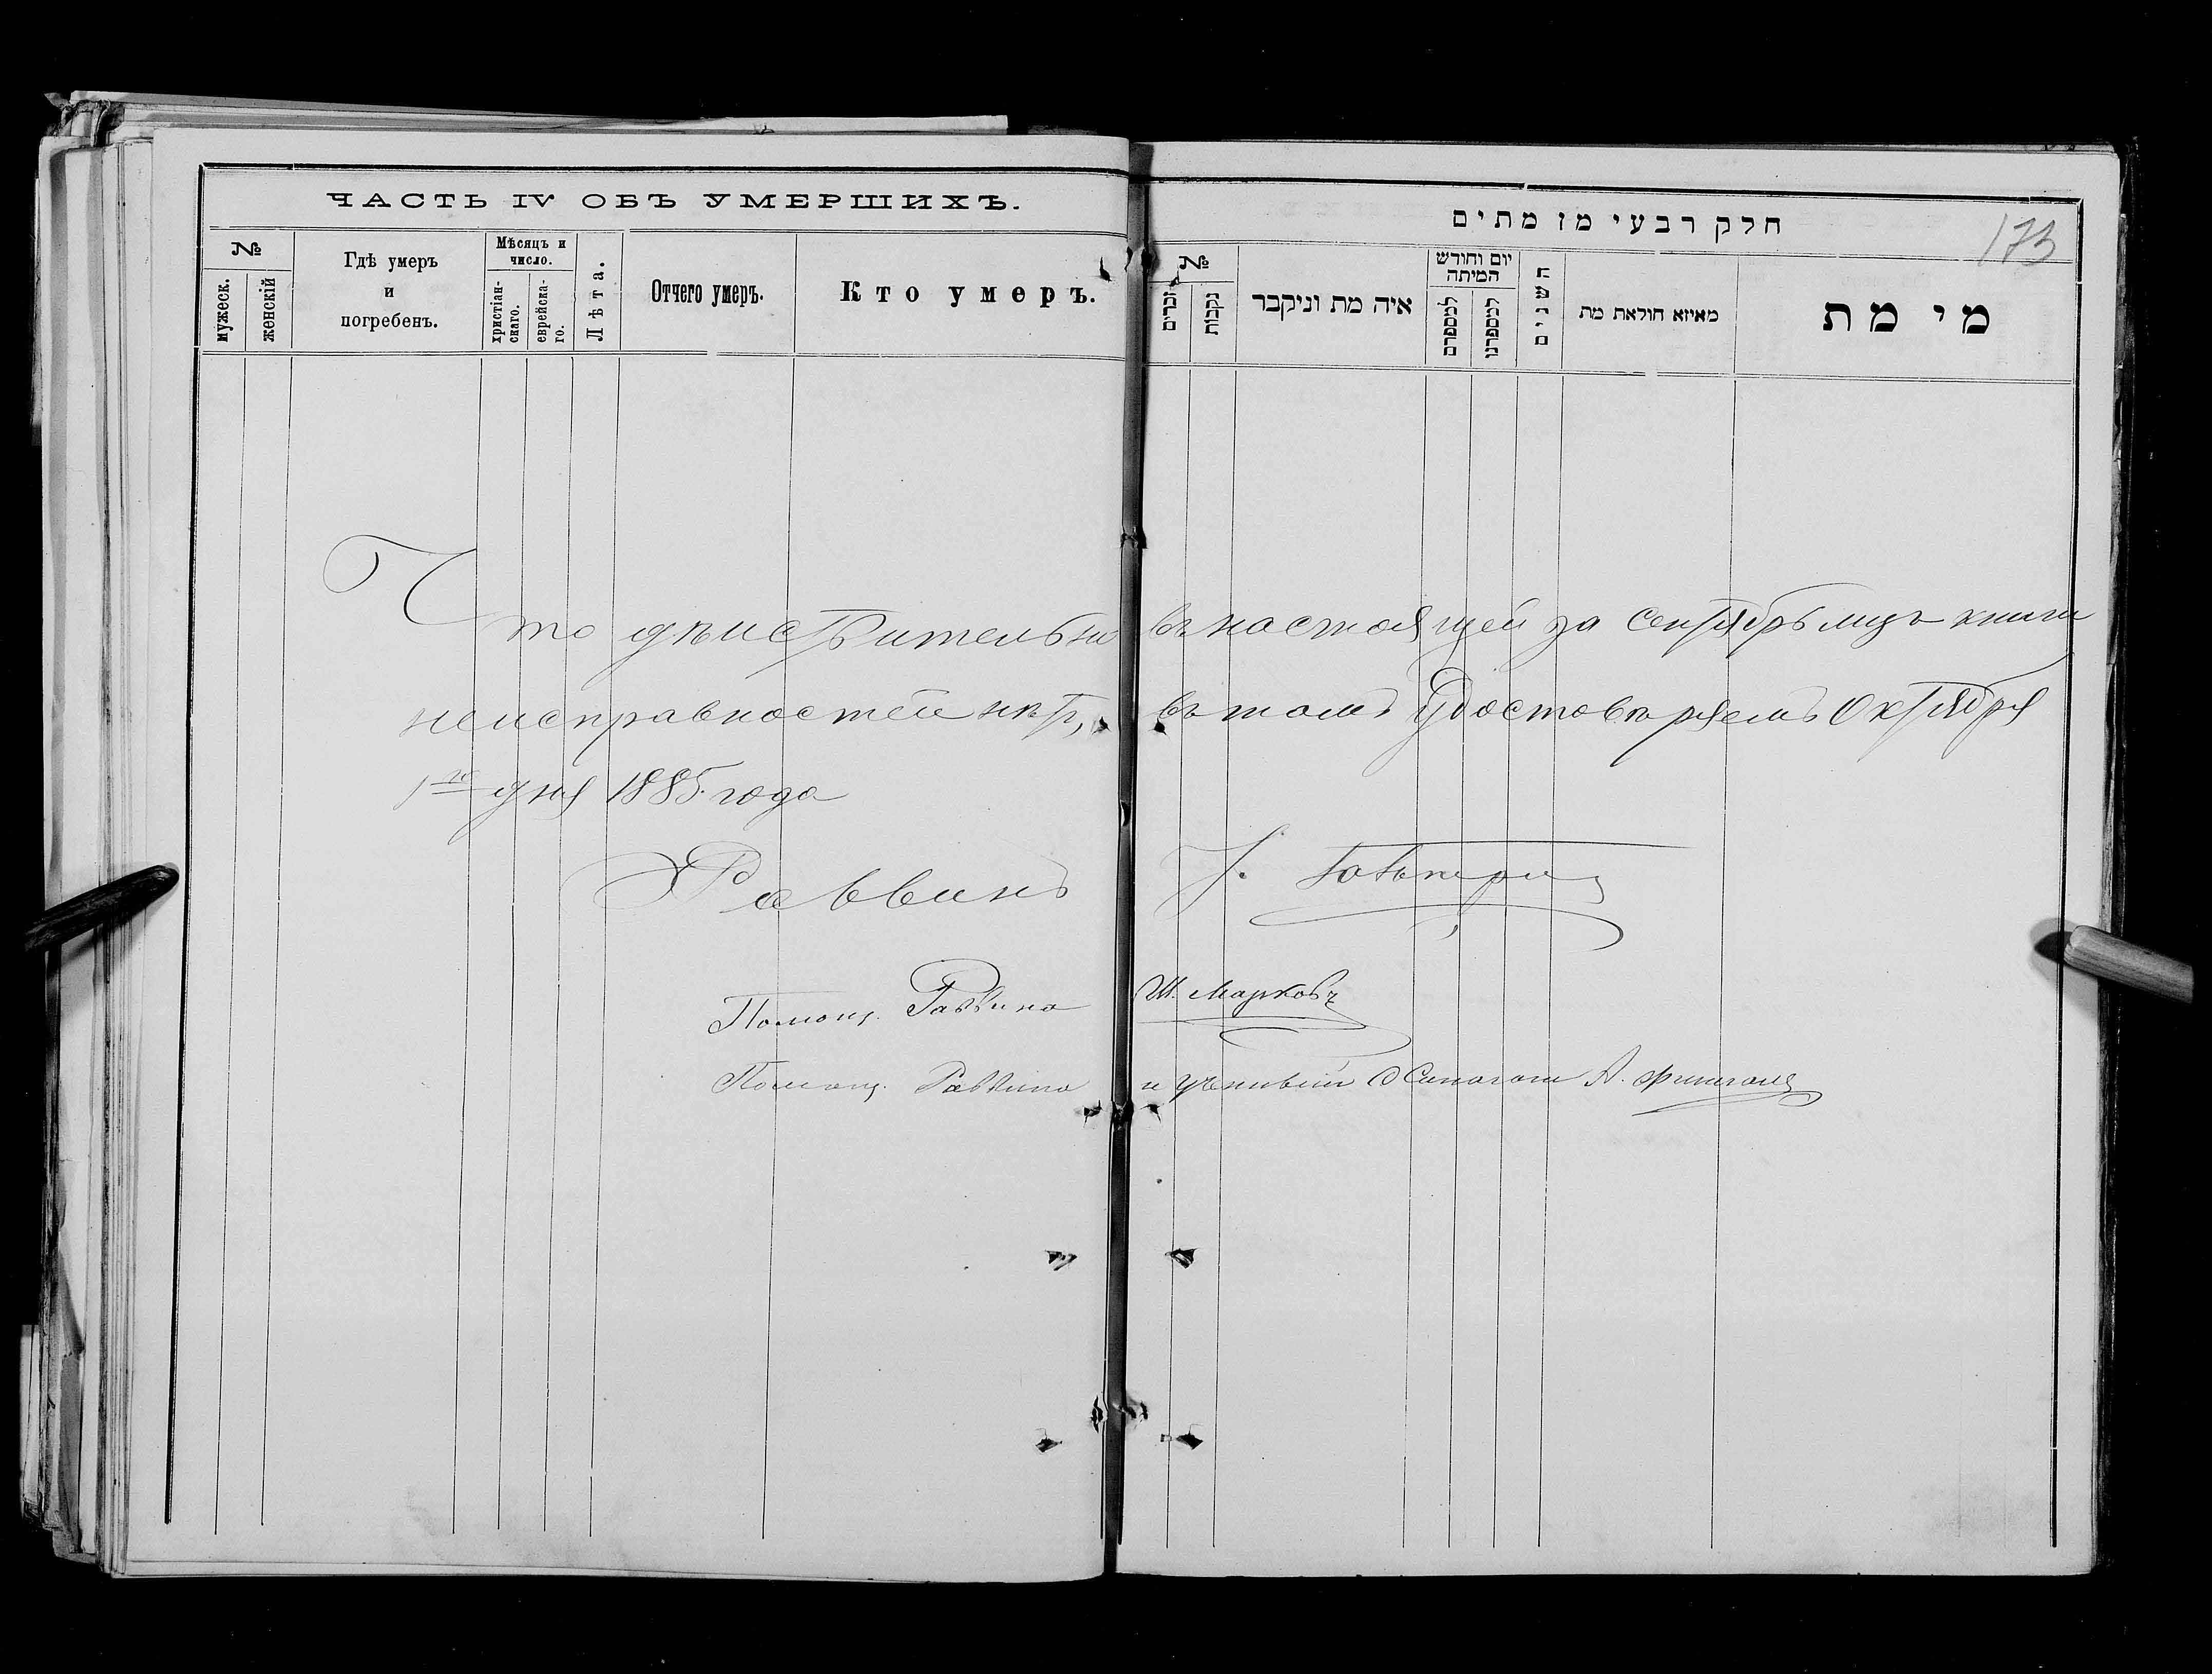 ЧАСТЬ IV ОБЪ УМЕРШИХЪ.
№
мужеск.
женскій
Гдѣ умеръ
и
погребенъ.
Мѣсяцъ и
число.
христіан-
скаго.
еврейска-
го.
Лѣта.
Отчего умеръ.
Кто умеръ.
חלק רבעי מז מתים
173
№
זכרים
נקבות
איה מת וניקבר
יום וחודש
המיתה
למספרם
למספרנו
השנים
מאיזא חולאת מת
מי מת
Что дѣиствительно въ настоящей за Сентябрь мцъ книги
неисправностей нѣтъ, въ томъ Удостовѣряемъ Октября
1го дня 1885 года
Раввинъ
Помощ. Раввина Ш. Марковъ
Помощ. Раввина и